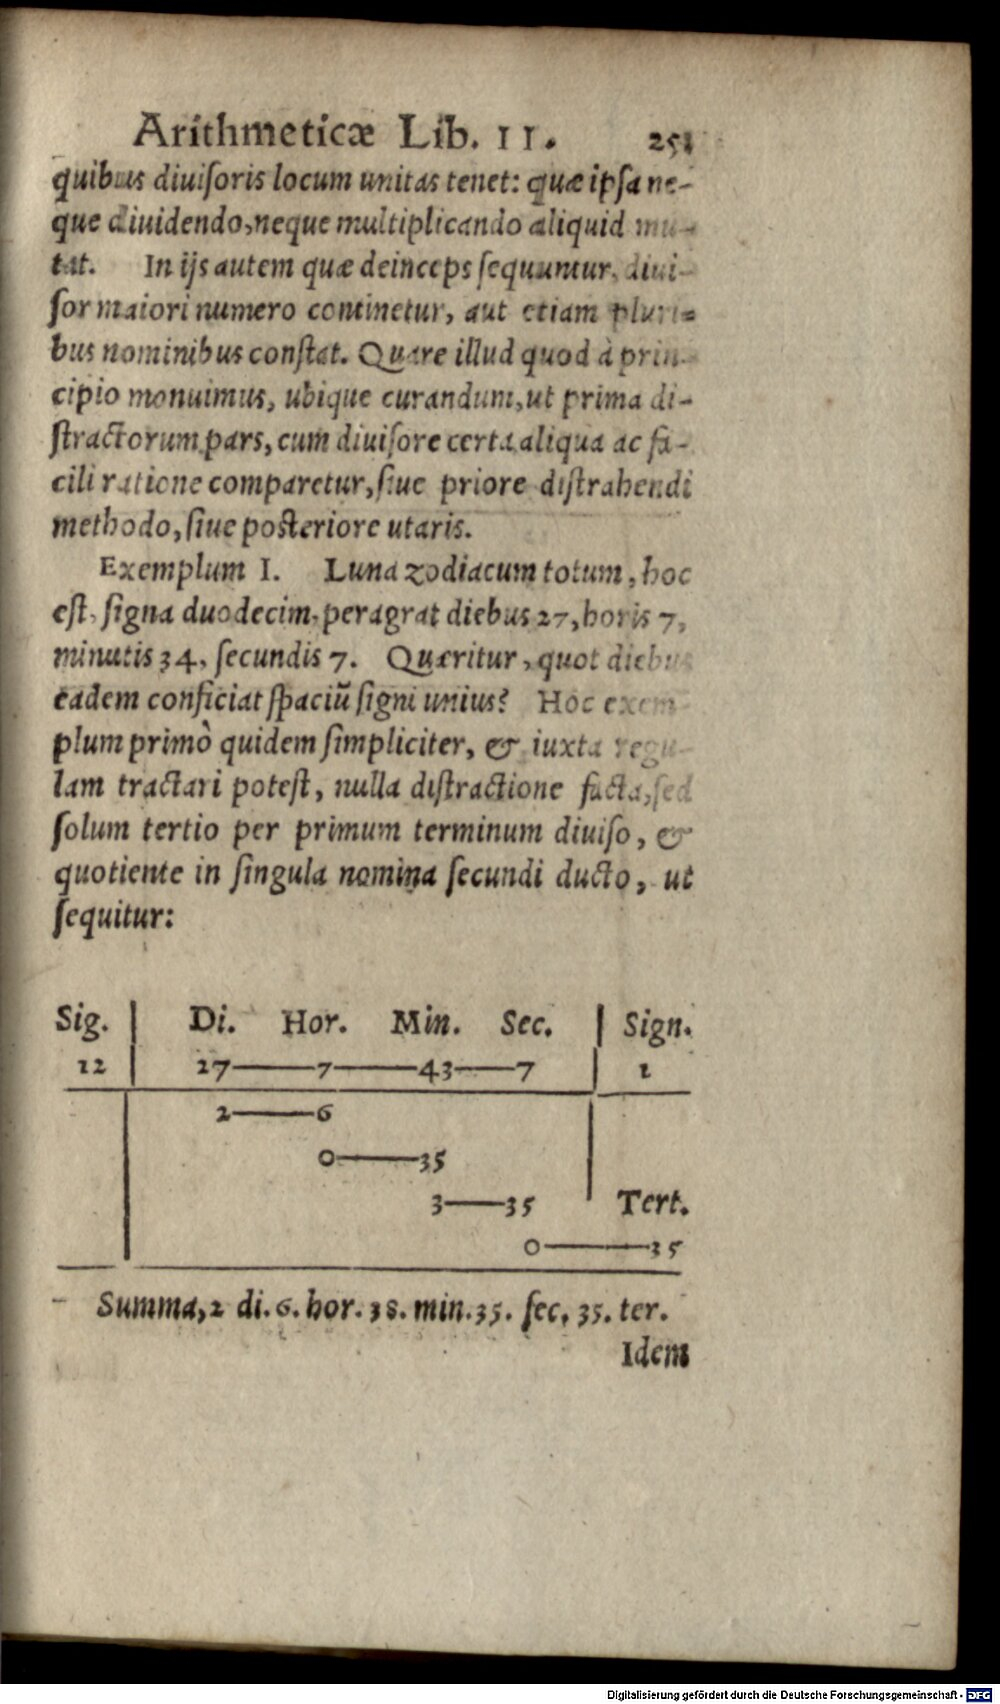 Arithmeticæ Lib. II. 251
quibus diuiſoris locum unitas tenet: quæ ipſa ne-
que diuidendo, neque multiplicando aliquid mu-
tat. In ijs autem quæ deinceps ſequuntur, diui-
ſor maiori numero continetur, aut etiam pluri-
bus nominibus conſtat. Quare illud quod à prin-
cipio monuimus, ubique curandum, ut prima di-
ſtractorum pars, cum diuiſore certa aliqua ac fa-
cili ratione comparetur, ſiue priore diſtrahendi
methodo, ſiue poſteriore utaris.
Exemplum I. Luna zodiacum totum, hoc
eſt, ſigna duodecim, peragrat diebus 27, horis 7,
minutis 34, ſecundis 7. Quæritur, quot diebus
eadem conficiat ſpaciũ ſigni unius? Hoc exem-
plum primò quidem ſimpliciter, & iuxta regu-
lam tractari poteſt, nulla diſtractione facta, ſed
ſolum tertio per primum terminum diuiſo, &
quotiente in ſingula nomina ſecundi ducto, ut
ſequitur:
Sig. | Di. Hor. Min. Sec. | Sign.
12 | 27—7—43—7 | 1
2—6
0—35
3—35 Tert.
0—35
Summa, 2 di. 6. hor. 38. min. 35. ſec. 35. ter.
Idem
Digitalisierung gefördert durch die Deutsche Forschungsgemeinschaft - DFG